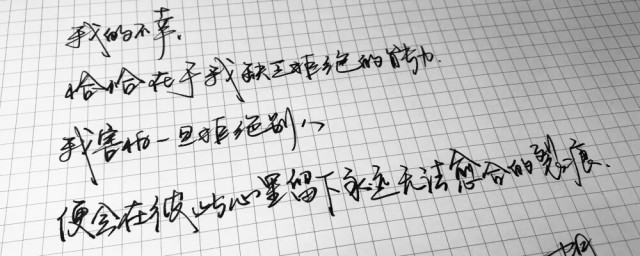 我的不幸，
恰恰在于我缺乏拒绝的能力。
我害怕一旦拒绝别人
便会在彼此心里留下永远无法愈合的裂痕。